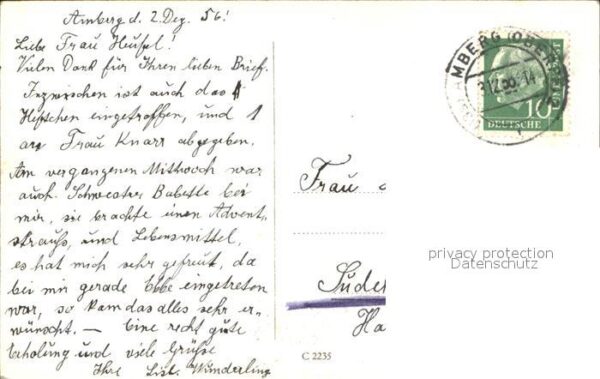 Amberg d. 2. Dez. 56!
Liebe Frau Heusel!
Vielen Dank für Ihren lieben Brief.
Inzwischen ist auch das
Heftchen eingetroffen, und 1
an Frau Knarr abgegeben.
Am vergangenen Mittwoch war
auch Schwester Babette bei
mir, sie brachte einen Advent-
strauß, und Lebensmittel,
es hat mich sehr gefreut, da
bei mir gerade Ebbe eingetreten
war, so kam das alles sehr er-
wünscht. — Eine recht gute
Erholung und viele Grüße
Ihre List. Wunderling
AMBERG (OBERPF)
-3.12.56-14
10
DEUTSCHE
BUNDESPOST
Frau
privacy protection
Datenschutz
Süde
Ha
C 2235